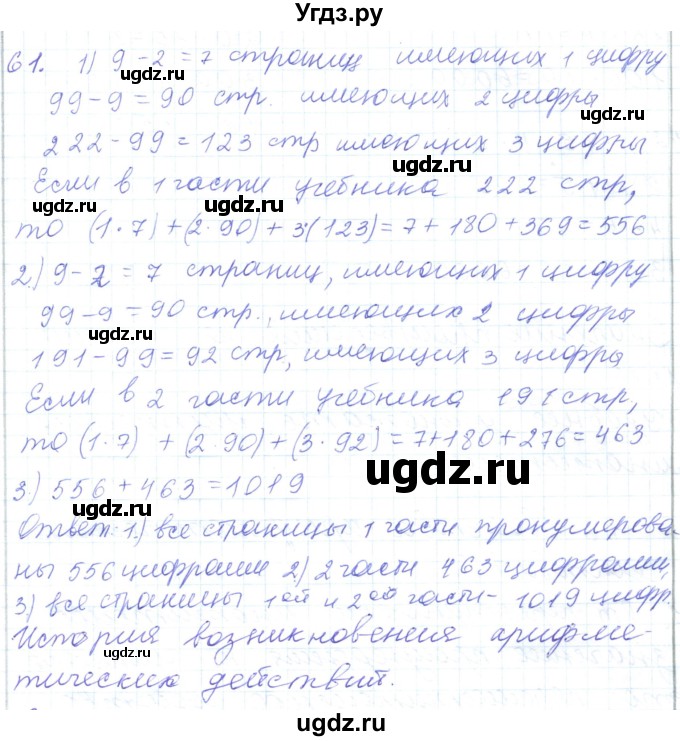 Угдз.ру
61. 1) 9-2=7 страниц имеющих 1 цифру
99-9=90 стр. имеющих 2 цифры
222-99=123 стр имеющих 3 цифры
Если в 1 части учебника 222 стр,
то (1·7)+(2·90)+3·(123)=7+180+369=556
2) 9-2=7 страниц, имеющих 1 цифру
99-9=90 стр., имеющих 2 цифры
191-99=92 стр, имеющих 3 цифры
Если в 2 части учебника 191 стр,
то (1·7)+(2·90)+(3·92)=7+180+276=463
3) 556+463=1019
Ответ: 1.) все страницы 1 части пронумерова-
ны 556 цифрами 2) 2 части 463 цифрами,
3) все страницы 1ой и 2ой части- 1019 цифр.
История возникновения арифме-
тических действий.
ugdz.ru
ugdz.ru
ugdz.ru
ugdz.ru
ugdz.ru
ugdz.ru
ugdz.ru
ugdz.ru
ugdz.ru
ugdz.ru
ugdz.ru
ugdz.ru
ugdz.ru